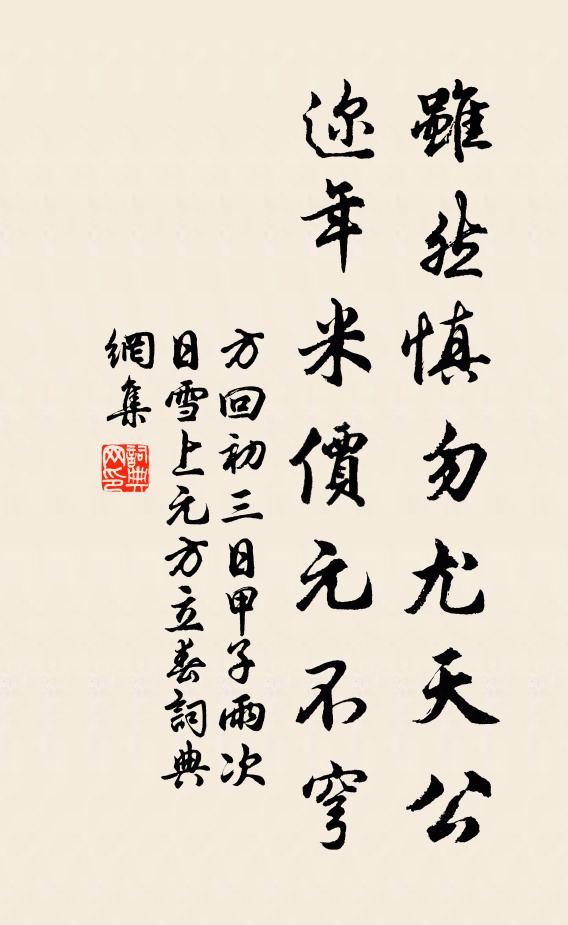 雖然慎勿尤天公
邇年米價元不穹
方回初三日甲子雨次
日雪上元方立春詞典
網集
詞典
網印